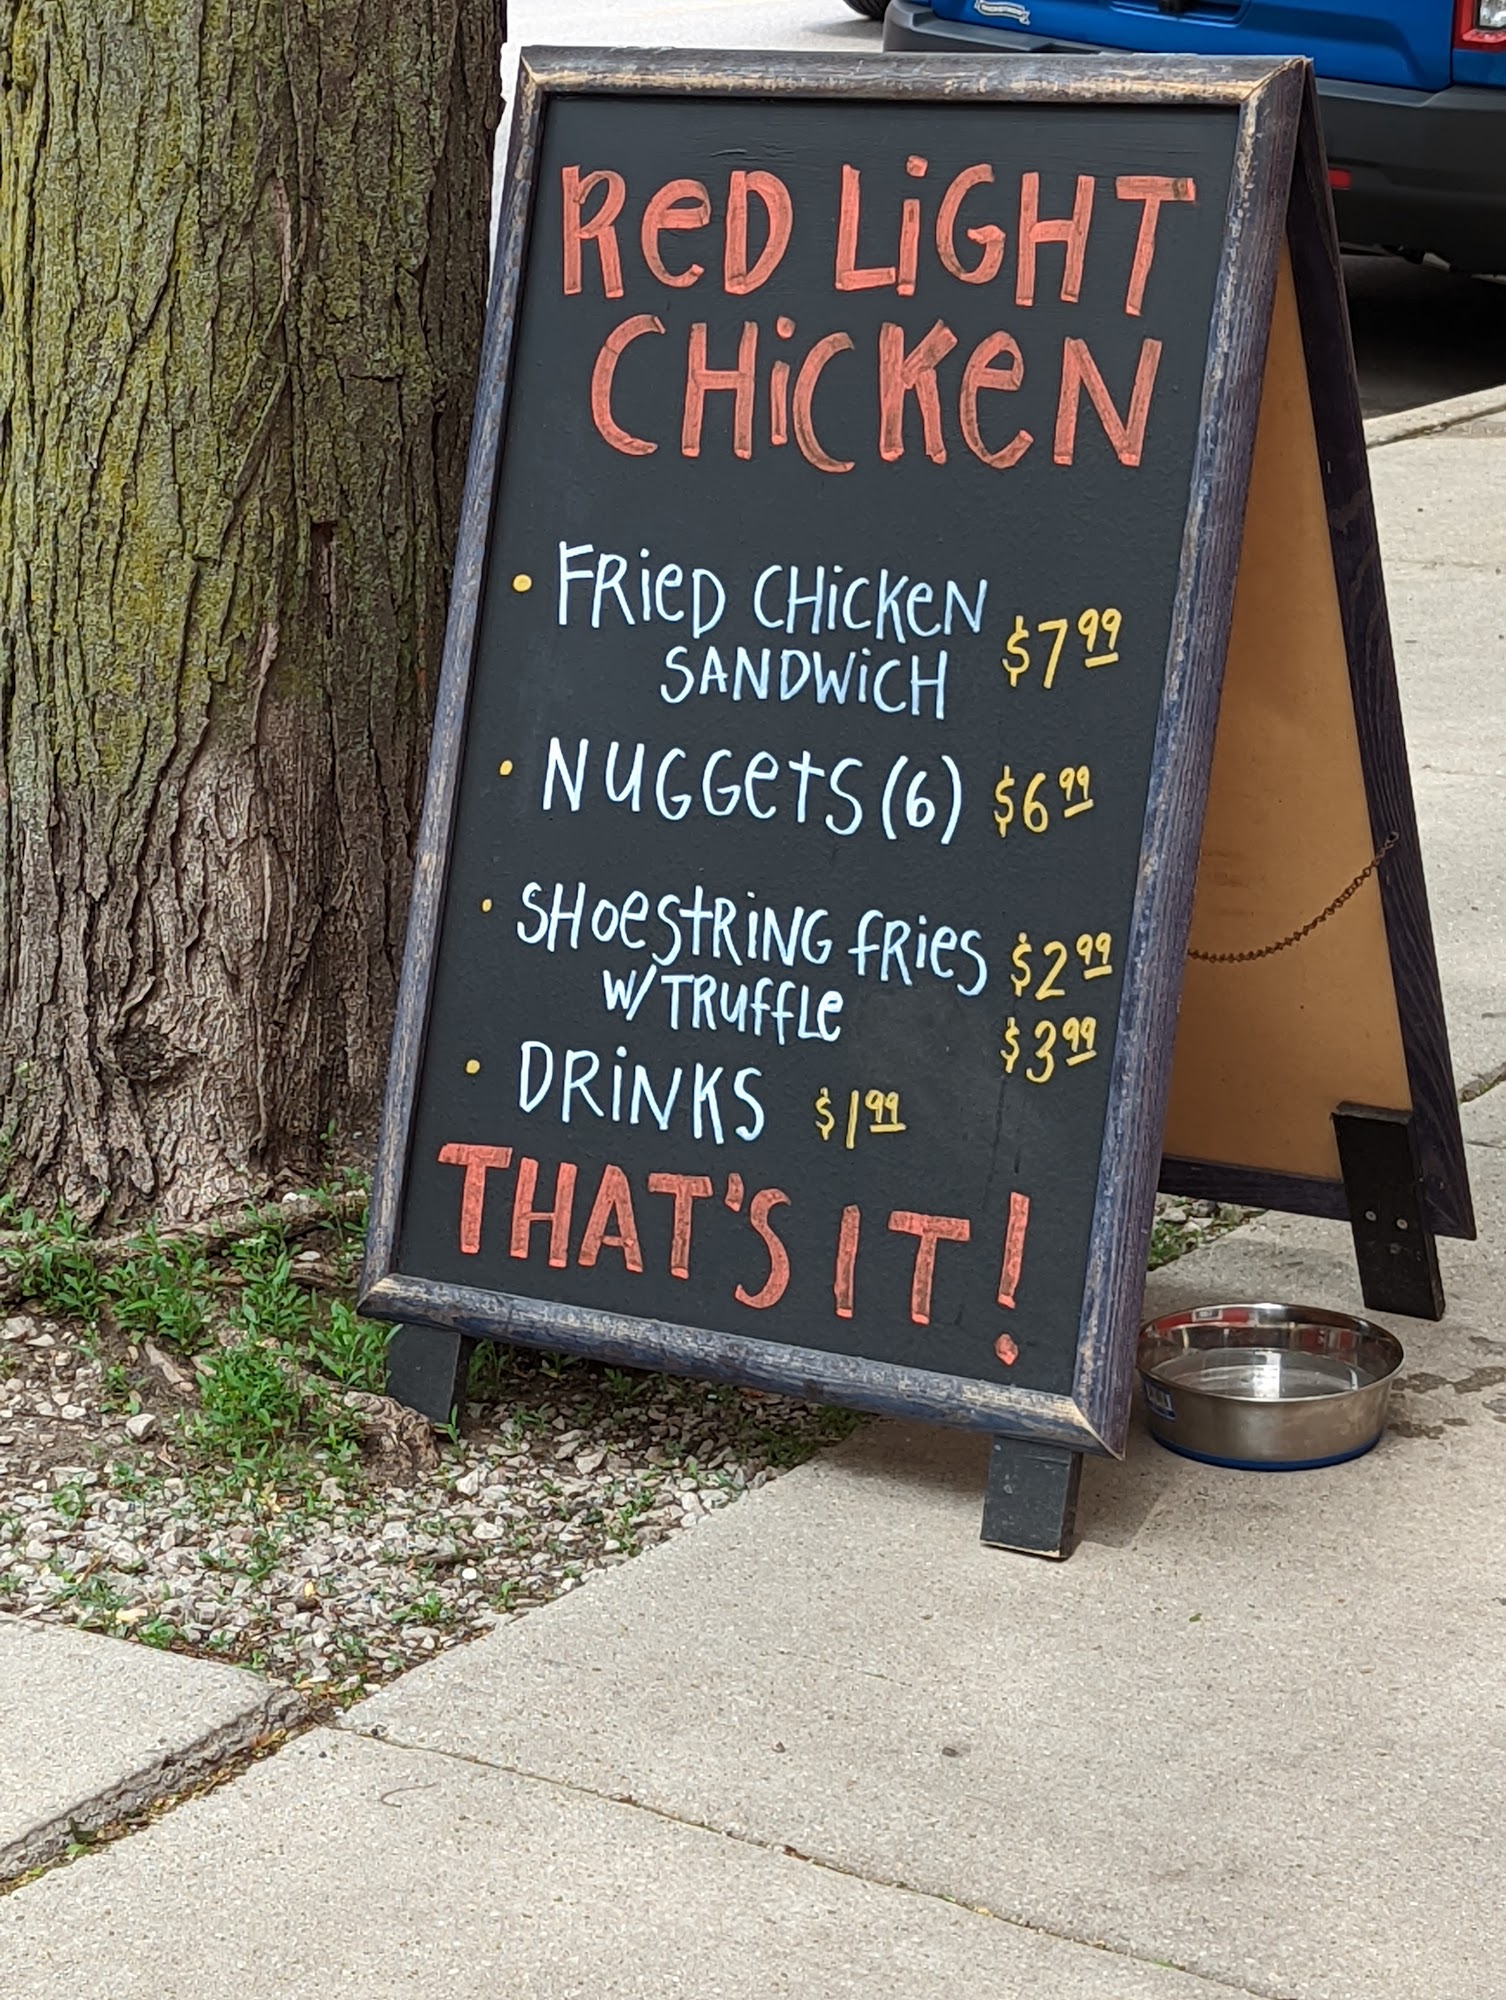 RED LIGHT
CHICKEN
• FRIED CHICKEN
SANDWICH $7.99
• NUGGETS (6) $6.99
• SHOESTRING FRIES $2.99
W/ TRUFFLE $3.99
• DRINKS $1.99
THAT'S IT!